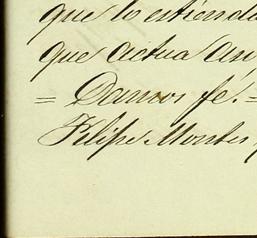 que lo estienda
que actua an
= Damos fé. =
Felipe Montes